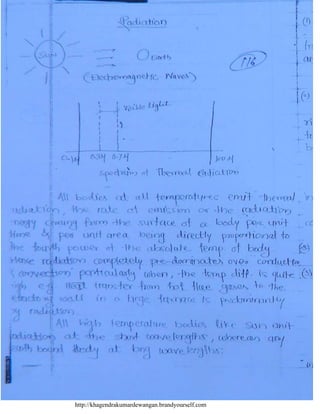 Radiation
SUN
Earth
(Electromagnetic Waves)
116
Visible light
0.1μ 0.3μ 0.7μ 100μ
spectrum of Thermal Radiation
All bodies at all temperatures emit thermal
radiation, the rate of emission or the radiation
energy coming from the surface of a body per unit
time & per unit area being directly proportional to
the fourth power of the absolute temp of body
Hence radiation completely pre-dominates over conduction
& convection particularly when, the temp diff. is quite
high e.g. Heat transfer from hot flue gases to the
wall in a large furnace is predominantly
by radiation.
All high temperature bodies like sun emit
radiation at the short wavelengths, whereas any
earth bound Body at long wavelengths.
http://khagendrakumardewangan.brandyourself.com